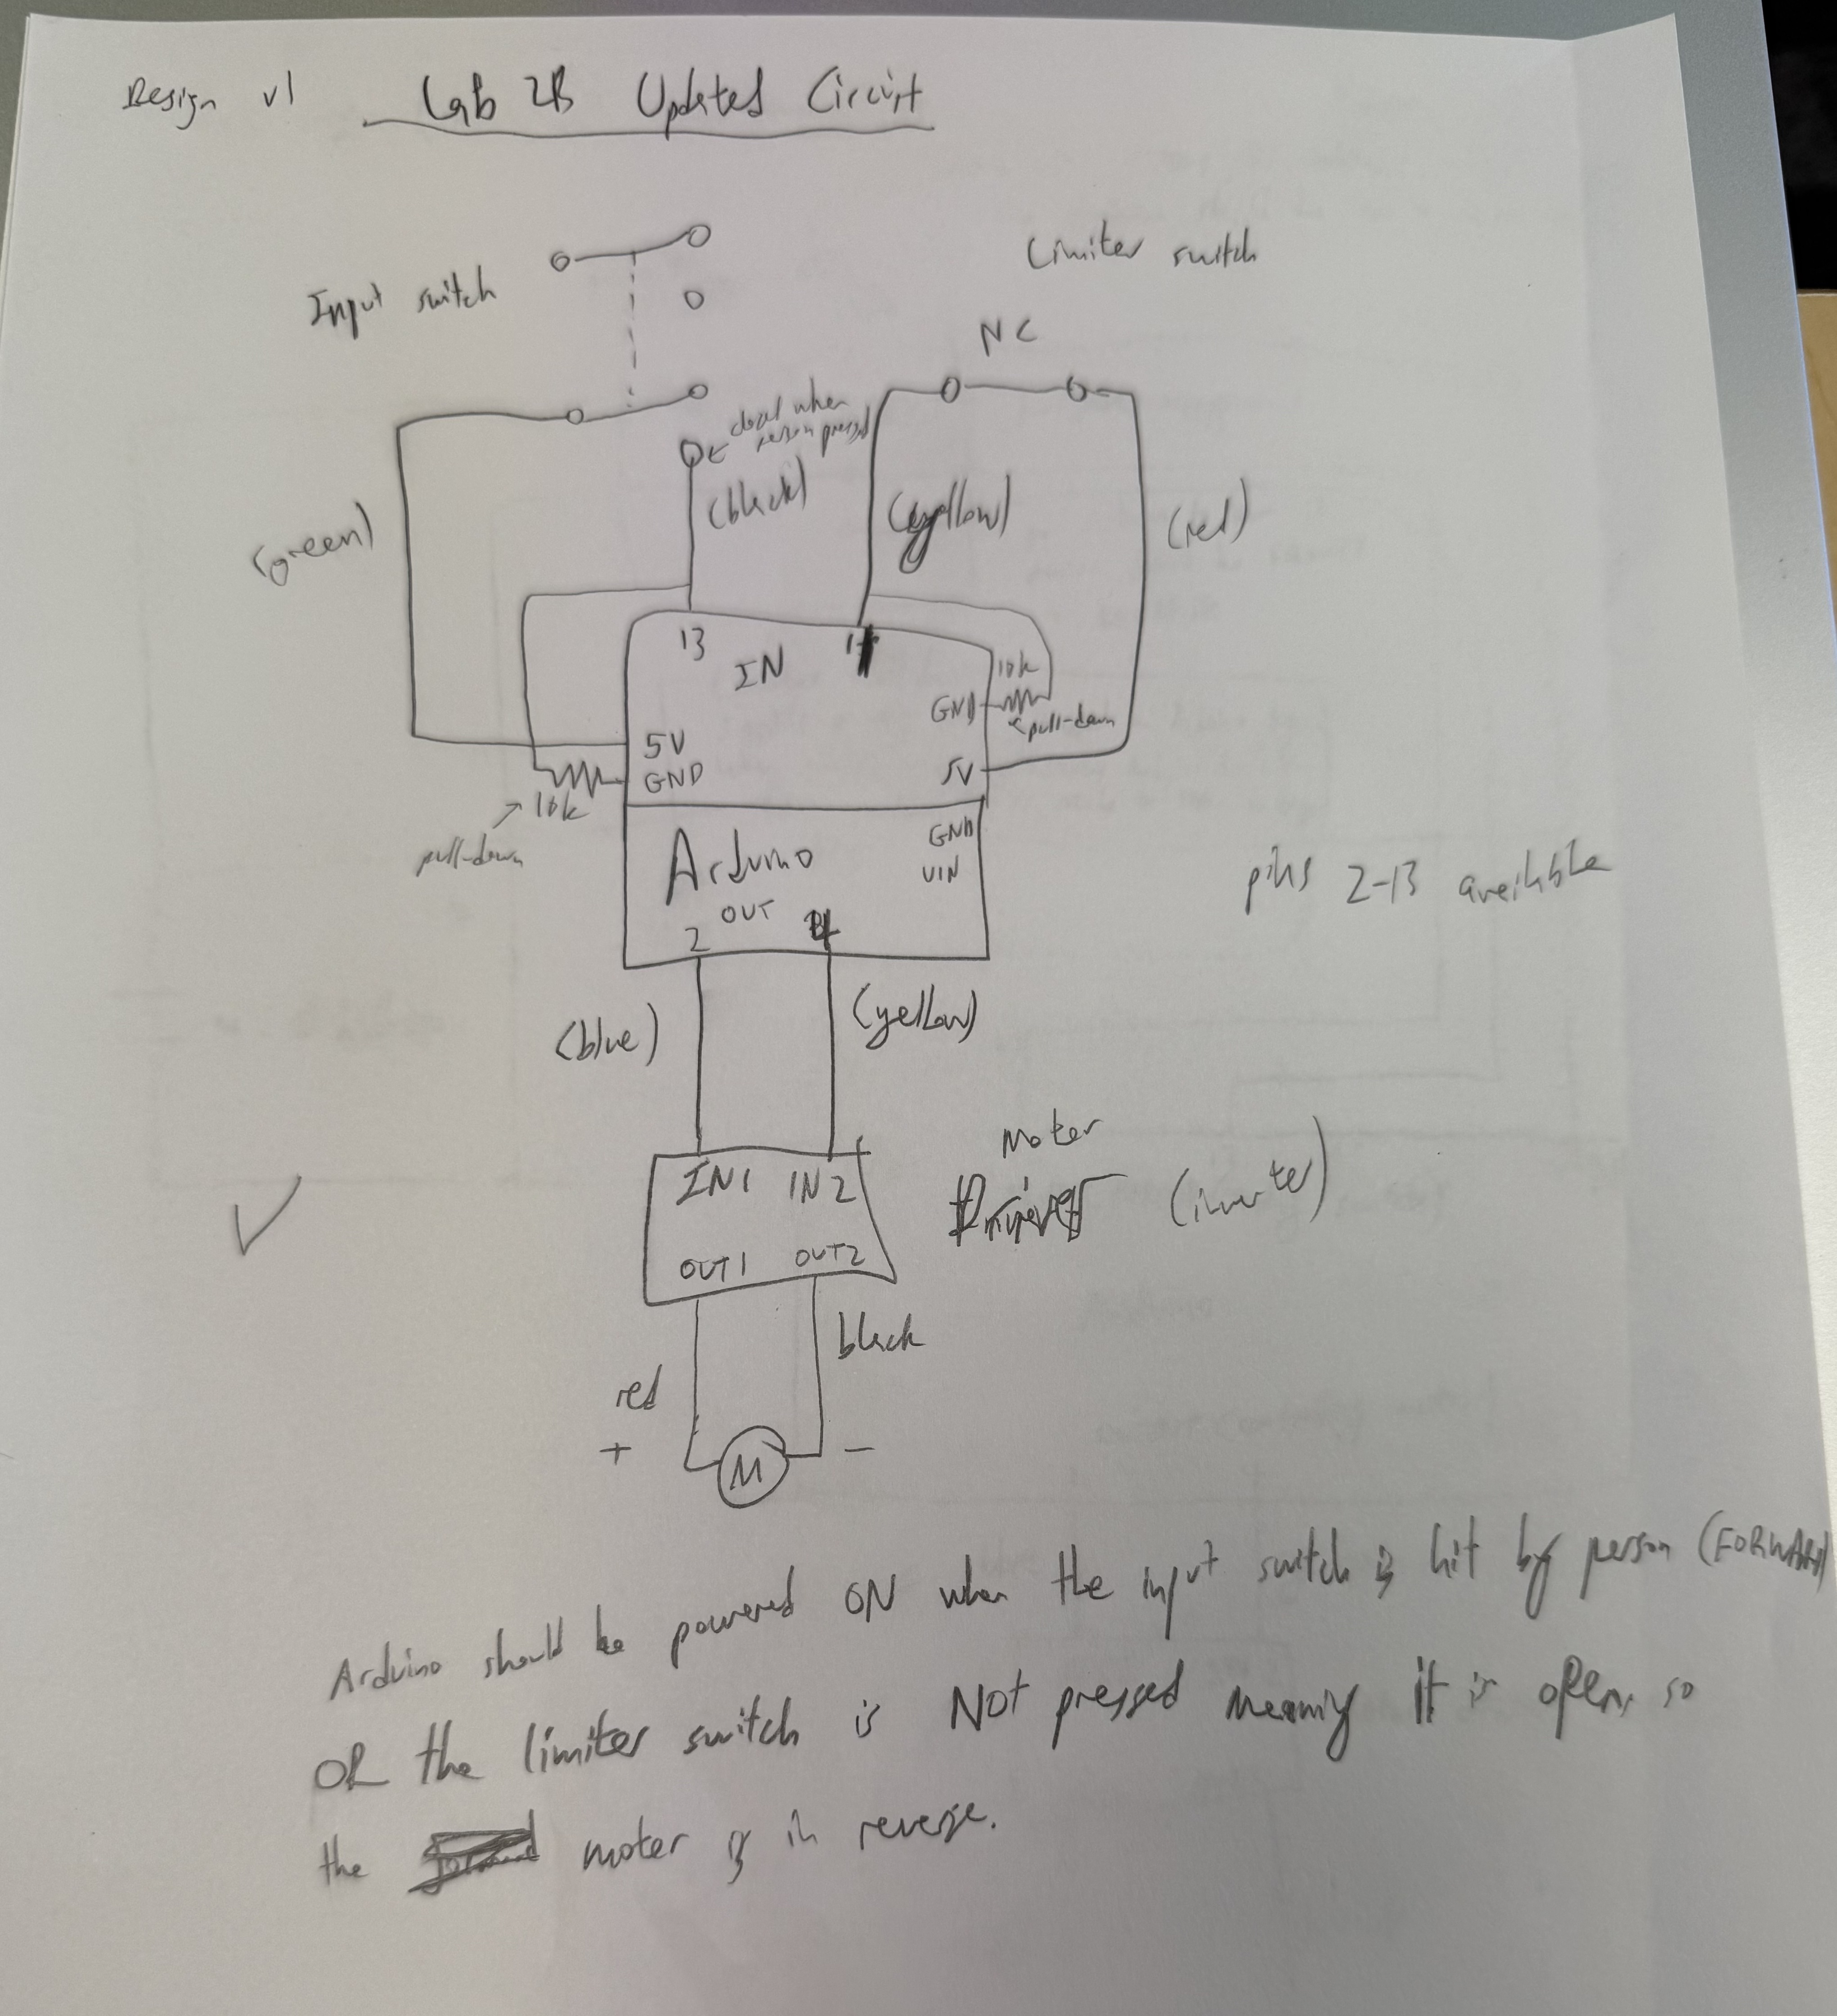 Design v1 Lab 2B Updated Circuit
Input switch
Limiter switch
NC
closed when
person pressed
(green)
(black)
(yellow)
(red)
13
IN
10k
GND
pull-down
5V
GND
5V
10k
pull-down
GND
VIN
Arduino
OUT
2
4
pins 2-13 available
(blue)
(yellow)
Motor
Driver (inverter)
IN1 IN2
OUT1 OUT2
red
black
+
-
M
Arduino should be powered ON when the input switch is hit by person (FORWARD)
OR the limiter switch is NOT pressed meaning it is open, so
the motor is in reverse.